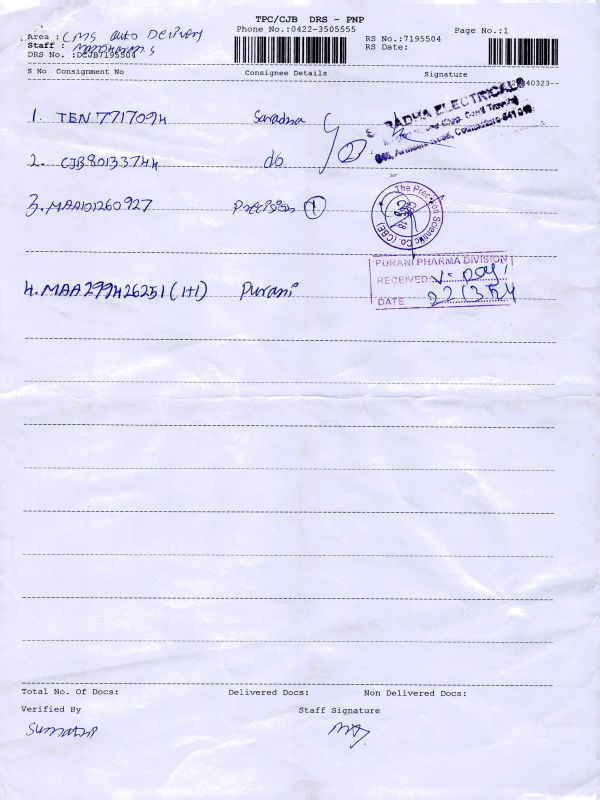 TPC/CJB DRS - PNP
Area : CMS Auto Delivery
Phone No.:0422-3505555
Page No.:1
Staff :
RS No.:7195504
DRS No. :DCJB7195504
RS Date:
S No Consignment No Consignee Details Signature
1. TEN 7717094 Saradha
RADHA ELECTRICALS
2. CJB 801337744 do 2
3. MAA101260927 Precision 1
The Precision Scientific Co (CBE)
PURANI PHARMA DIVISION
RECEIVED:
4. MAA299426251 (1+1) Purani
DATE 22/3/24
Total No. Of Docs: Delivered Docs: Non Delivered Docs:
Verified By Staff Signature